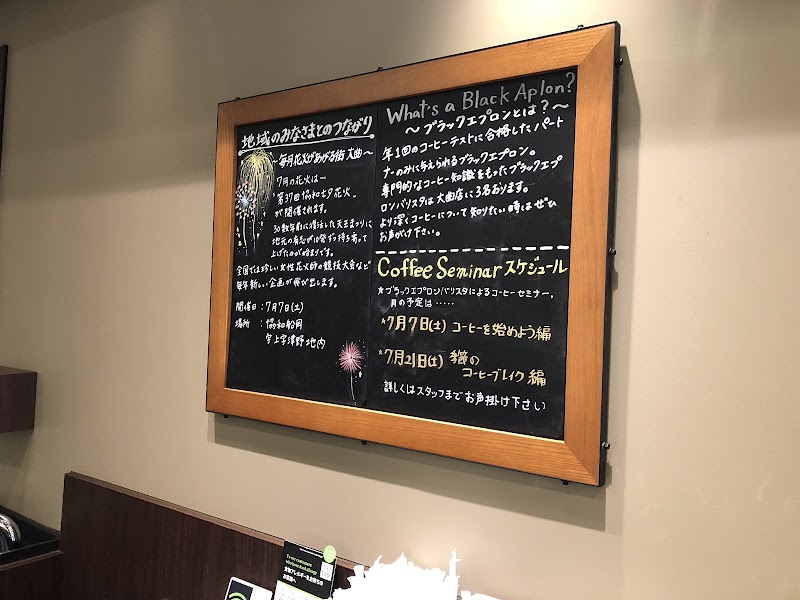 地域のみなさまとのつながり
～毎月花火があがる街 大曲～
7月の花火は―
"第37回 協和七夕花火"
が開催されます。
30数年前に復活した天王まつりに
地元の有志が10発ずつ持ち寄って
上げたのが始まりです。
全国では珍しい女性花火師の競技大会など
毎年新しい企画が飛び出します。
開催日：7月7日(土)
場所　：協和船岡
字上宇津野地内
What's a Black Aplon?
～ブラックエプロンとは？～
年1回のコーヒーテストに合格したパート
ナーのみに与えられるブラックエプロン。
専門的なコーヒー知識をもったブラックエプ
ロンバリスタは大曲店に3名おります。
より深くコーヒーについて知りたい時はぜひ
お声がけ下さい。
Coffee Seminar スケジュール
★ブラックエプロンバリスタによるコーヒーセミナー、
月の予定は……
★7月7日(土) コーヒーを始めよう編
★7月21日(土) 季節の
コーヒーブレイク編
詳しくはスタッフまでお声掛け下さい
食物アレルギーをお持ちの
お客様へ